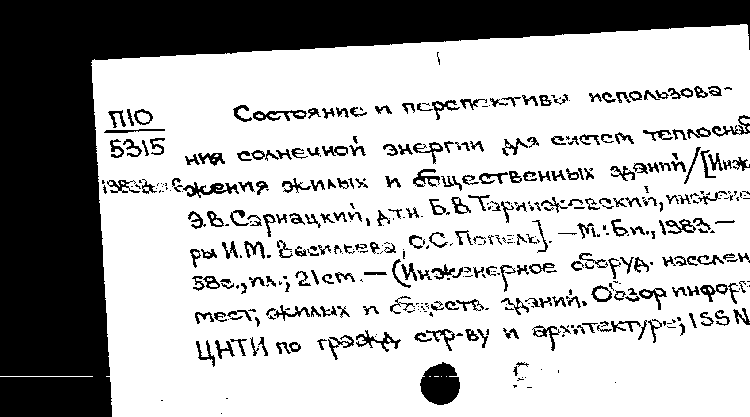 П10
5315
Состояние и перспективы использова-
ния солнечной энергии для систем теплоснаб
жения жилых и общественных зданий/[Инж.
Э.В. Сарнацкий, д.т.н. Б.В. Тарнижевский, инжене
ры И.М. Васильева, О.С. Попель]. — М.: Б.и., 1983. —
58с., ил.; 21см. — (Инженерное оборуд. населен
мест, жилых и обществ. зданий. Обзор информ
ЦНТИ по гражд. стр-ву и архитектуре; ISSN